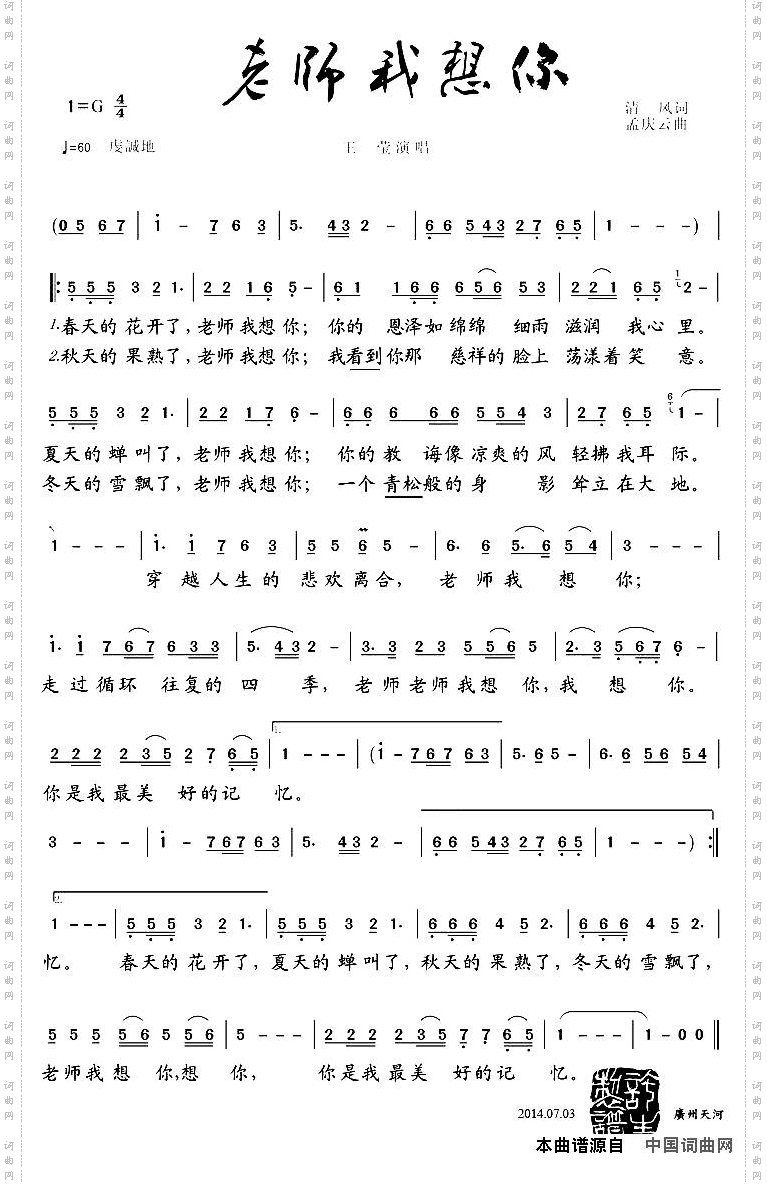 老师我想你
1=G 4/4
清 风词
孟庆云曲
♩=60 虔诚地
王 莹演唱
(0 5 6 7 | i - 7 6 3 | 5· 4 3 2 - | 6 6 5 4 3 2 7 6 5 | 1 - - - ) |
5 5 5 3 2 1· | 2 2 1 6 5 - | 6 1 1 6 6 6 5 6 5 3 | 2 2 1 6 5 2 - |
1.春天的 花开了,老师我想你; 你的 恩泽如绵绵 细雨 滋润 我心里。
2.秋天的 果熟了,老师我想你; 我看到你那 慈祥的脸上 荡漾着笑 意。
5 5 5 3 2 1· | 2 2 1 7 6 - | 6 6 6 6 6 5 5 4 3 | 2 7 6 5 1 - |
夏天的蝉叫了,老师我想你; 你的教 诲像凉爽的风 轻拂我耳 际。
冬天的雪飘了,老师我想你; 一个青松般的身 影 耸立在大 地。
1 - - - | i· i 7 6 3 | 5 5 6 5 - | 6· 6 5· 6 5 4 | 3 - - - |
穿 越人生的 悲欢离合, 老 师我 想 你;
i· i 7 6 7 6 3 3 | 5· 4 3 2 - | 3· 3 2 3 5 5 6 5 | 2· 3 5 6 7 6 - |
走过循环 往复的 四 季, 老师老师我想 你,我 想 你。
2 2 2 2 3 5 2 7 6 5 | 1 - - - | (i - 7 6 7 6 3 | 5· 6 5 - | 6· 6 5 6 5 4 |
1.
你是我最美 好的记 忆。
3 - - - | i - 7 6 7 6 3 | 5· 4 3 2 - | 6 6 5 4 3 2 7 6 5 | 1 - - - ) :‖
2.
1 - - - | 5 5 5 3 2 1· | 5 5 5 3 2 1· | 6 6 6 4 5 2· | 6 6 6 4 5 2· |
忆。 春天的 花开了,夏天的 蝉叫了,秋天的 果熟了,冬天的 雪飘了,
5 5 5 5 6 5 5 6 | 5 - - - | 2 2 2 2 3 5 7 7 6 5 | 1 - - - | 1 - 0 0 ‖
老师我 想 你,想 你, 你是我最美 好的记 忆。
2014.07.03
廣州天河
本曲谱源自 中国词曲网
词曲网